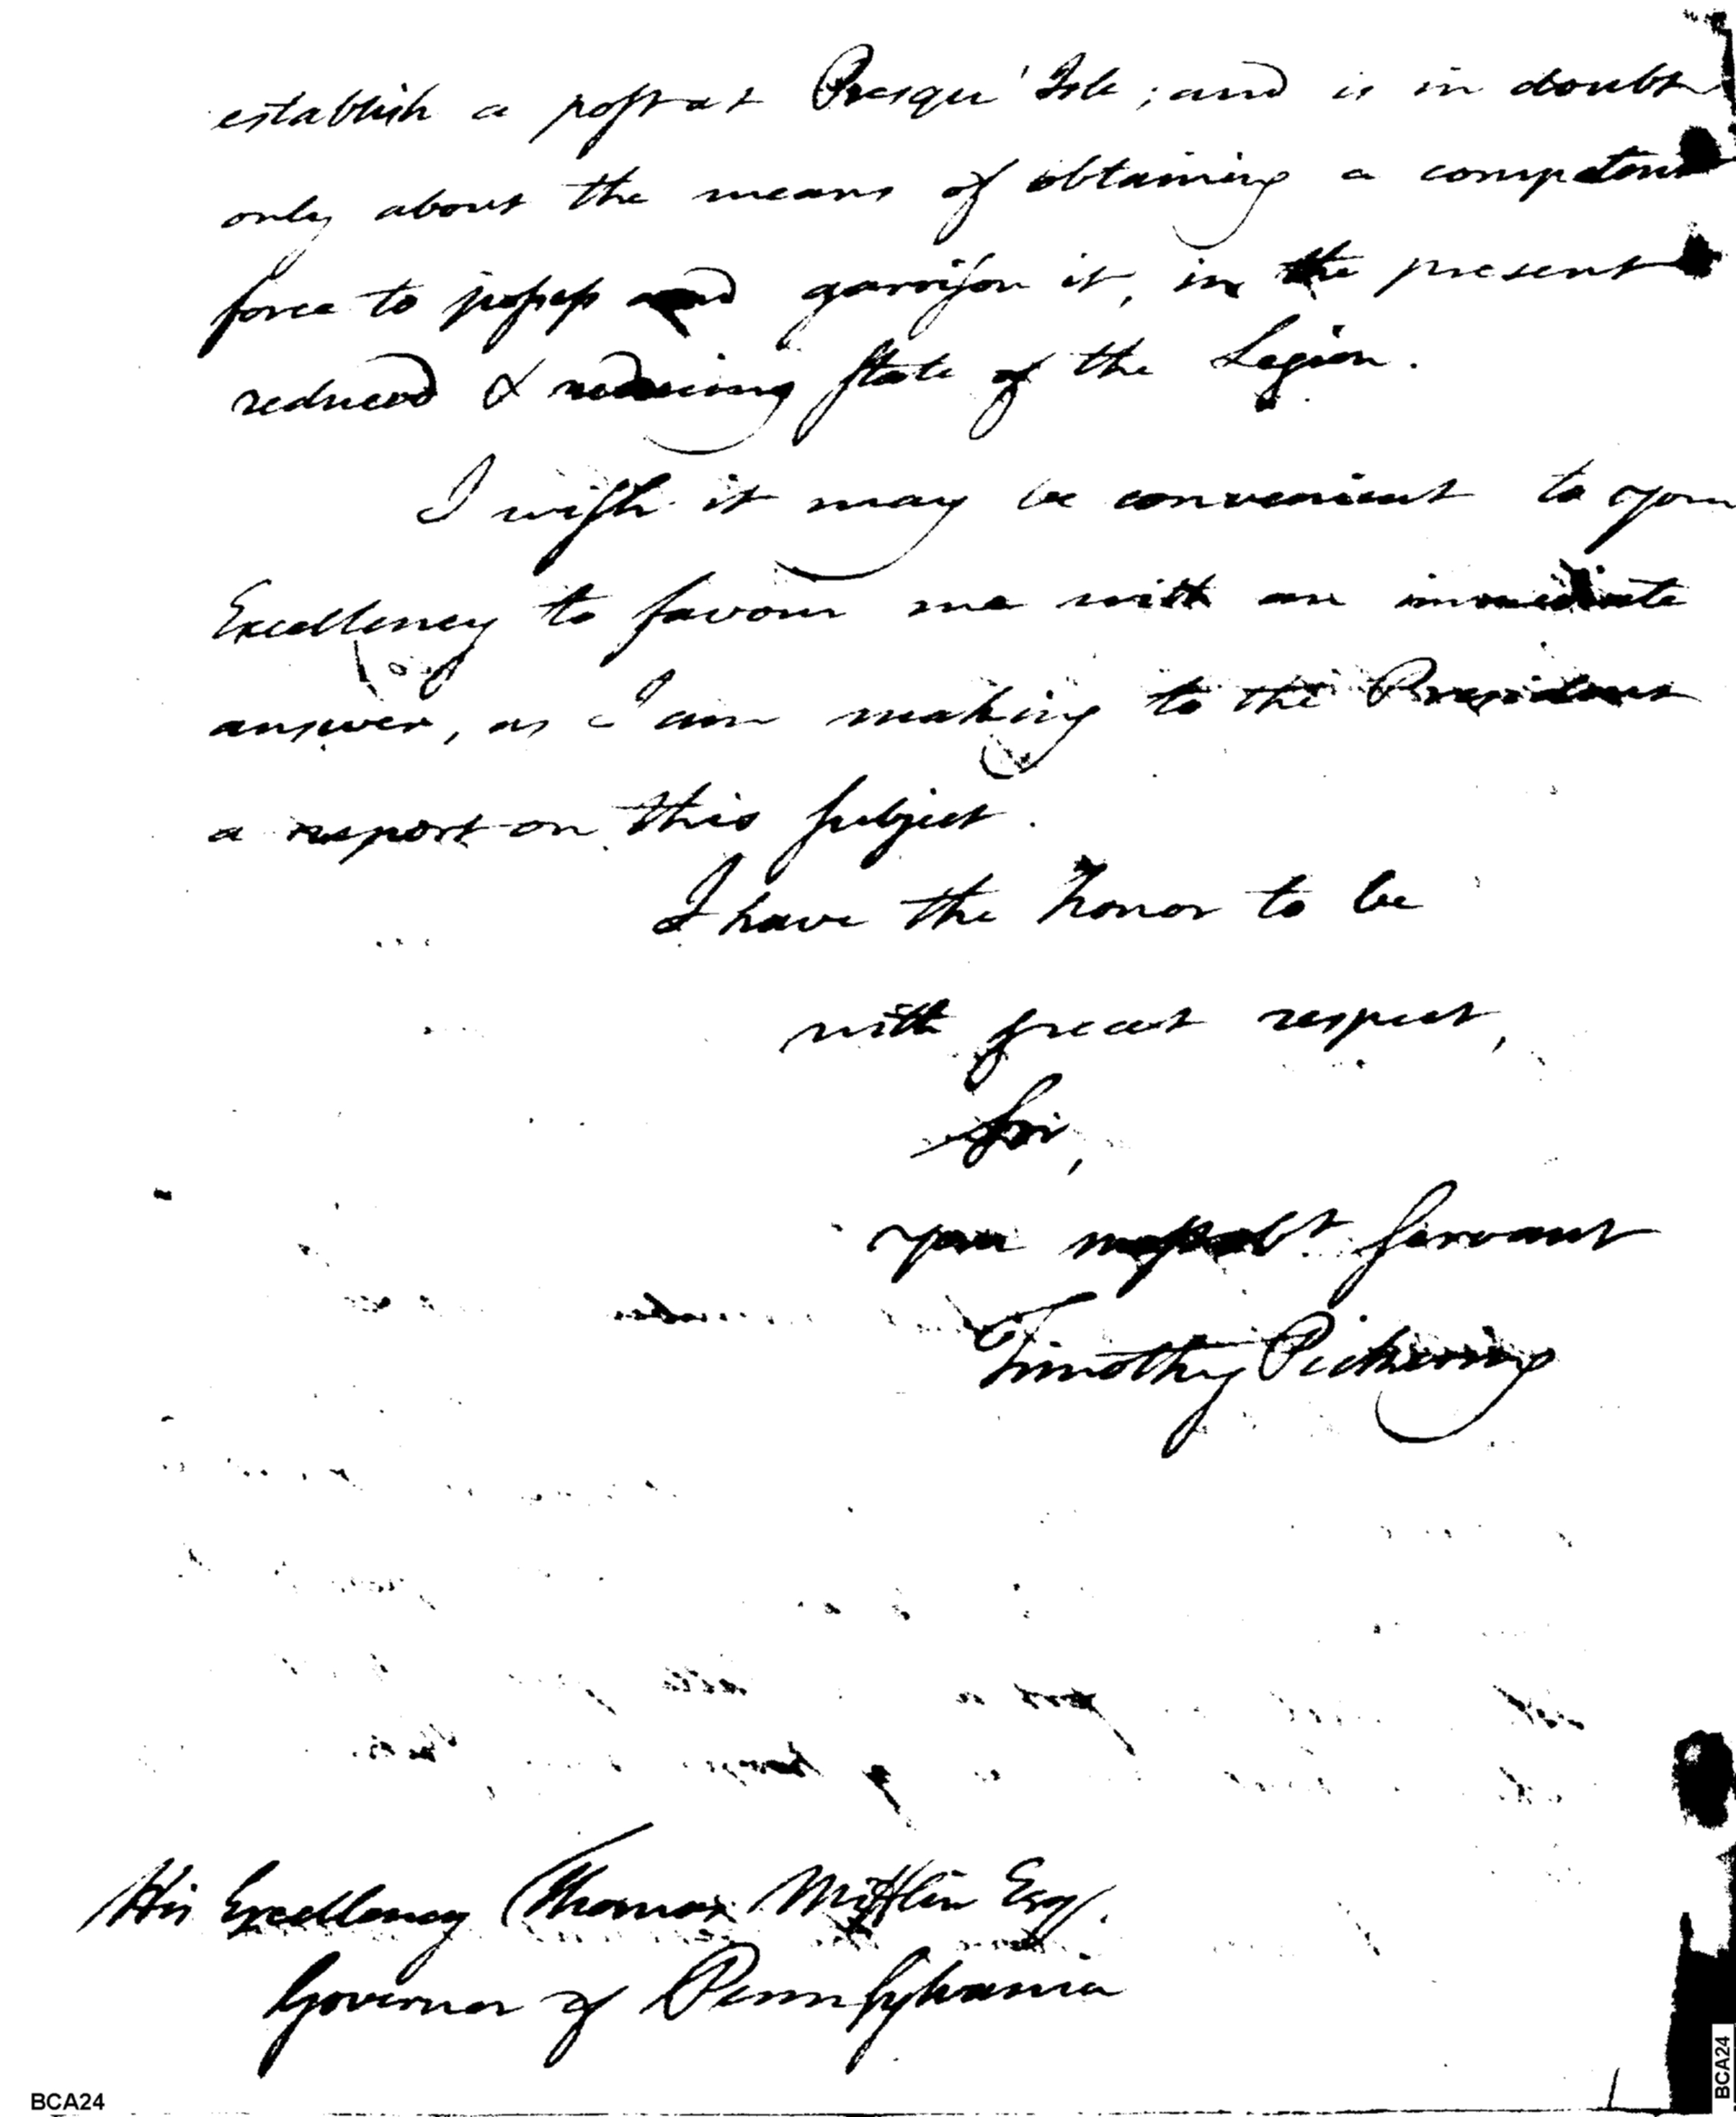 establish a post at Presqu' Isle; and is in doubt
only about the means of obtaining a competent
force to possess and garrison it, in the present
reduced & reducing state of the Legion.
I wish it may be convenient to your
Excellency to favour me with an immediate
answer, as I am making to the President
a report on this subject.
I have the honor to be
with great respect,
sir,
your most obt servant
Timothy Pickering
His Excellency Thomas Mifflin Esq.
Governor of Pennsylvania
BCA24
BCA24